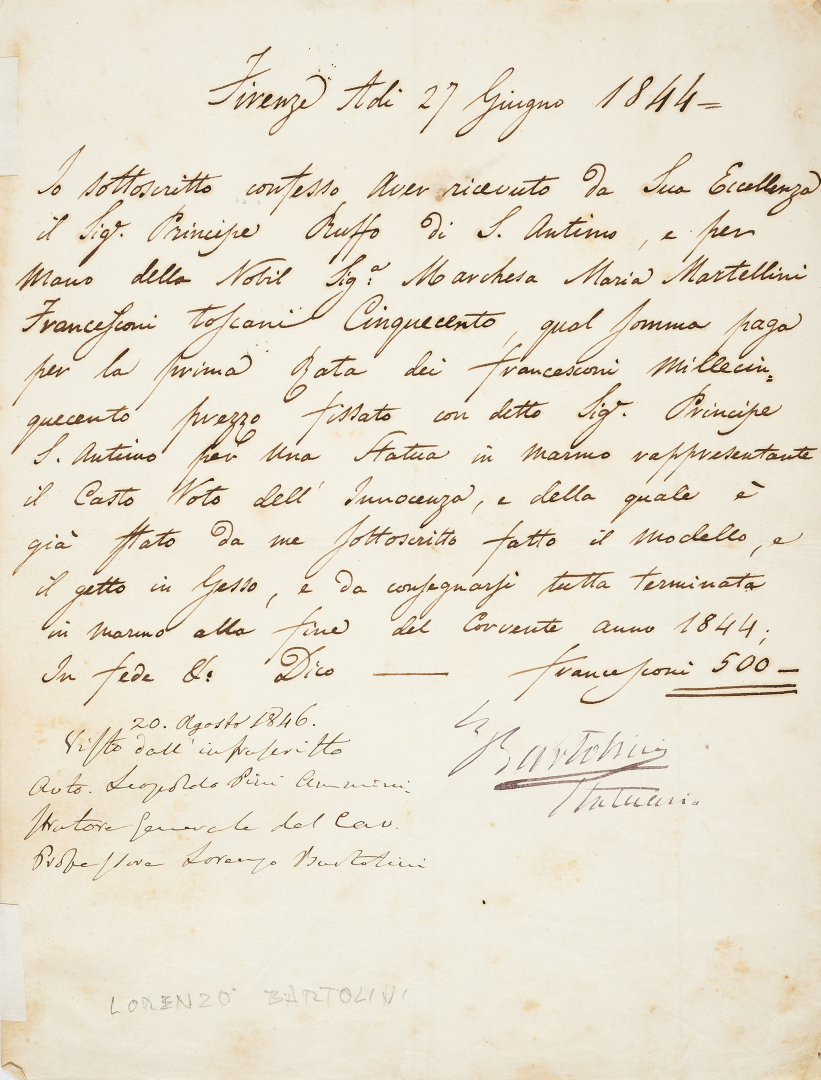 Firenze Adi 27 Giugno 1844=
Io sottoscritto confesso Aver ricevuto da Sua Eccellenza
il Sigr. Principe Ruffo di S. Antimo, e per
Mano della Nobil Sig.a Marchesa Maria Martellini
Francesconi toscani Cinquecento, qual somma paga
per la prima Rata dei francesconi Millecin=
quecento prezzo fissato con detto Sigr. Principe
S. Antimo per una Statua in marmo rappresentante
il Casto Voto dell' Innocenza, e della quale è
già stato da me sottoscritto fatto il modello, e
il getto in Gesso, e da consegnarsi tutta terminata
in marmo alla fine del Corrente anno 1844;
In fede &: Dico — francesconi 500—
L Bartolini
Statuario
20. Agosto 1846.
Visto dall' infrascritto
Avto. Leopoldo Pini Ammini-
stratore Generale del Cav.
Professore Lorenzo Bartolini
LORENZO BARTOLINI